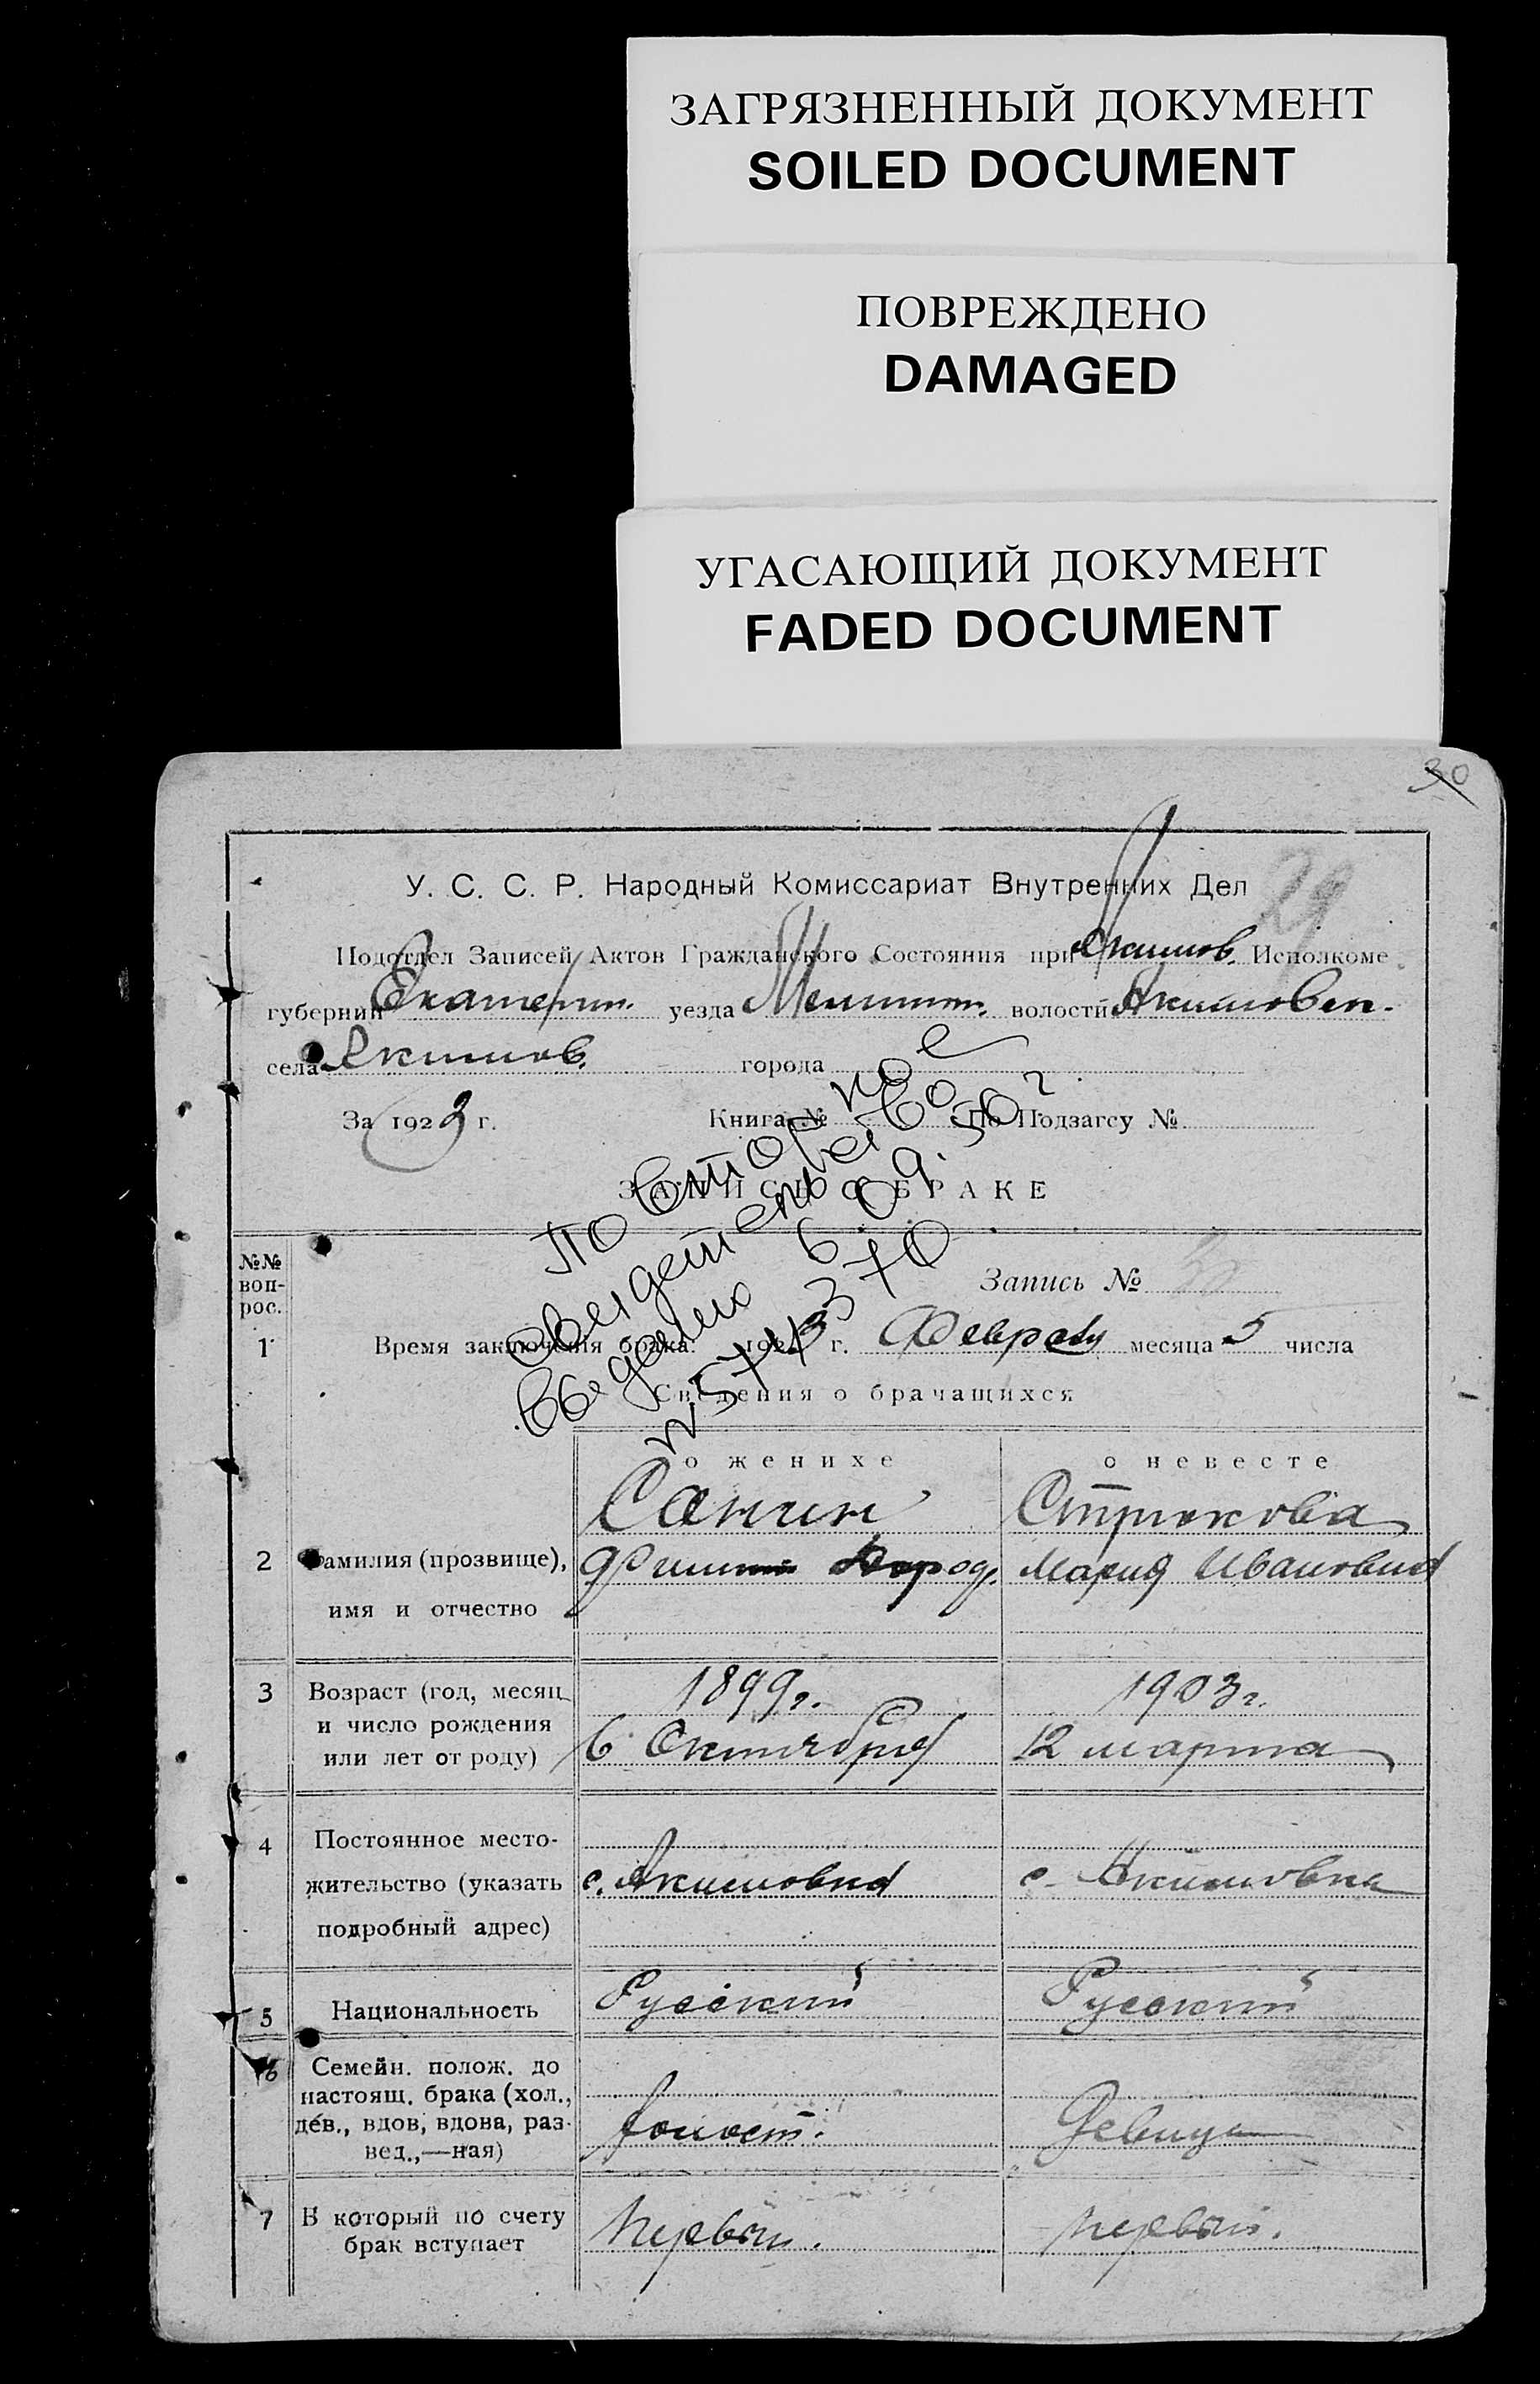 ЗАГРЯЗНЕННЫЙ ДОКУМЕНТ
SOILED DOCUMENT
ПОВРЕЖДЕНО
DAMAGED
УГАСАЮЩИЙ ДОКУМЕНТ
FADED DOCUMENT
30
29
У. С. С. Р. Народный Комиссариат Внутренних Дел
Подотдел Записей Актов Гражданского Состояния при Акимов. Исполкоме
губернии Екатерин. уезда Мелитоп. волости Акимовск.
села Акимов. города
За 1923 г. Книга № По Подзагсу №
ЗАПИСЬ О БРАКЕ
Повторное
свидетельство
выдано 6.09.50 г
№№ вопрос.
Запись №
1 Время заключения брака: 1923 г. Февраля месяца 5 числа
Сведения о брачащихся
о женихе о невесте
Санин Стрюкова
2 Фамилия (прозвище), Мария Ивановна
имя и отчество
3 Возраст (год, месяц 1899 г. 1903 г.
и число рождения
или лет от роду) 6 Октября 12 марта
4 Постоянное место-
жительство (указать с. Акимовка с. Акимовка
подробный адрес)
5 Национальность Русский Русский
6 Семейн. полож. до
настоящ. брака (хол.,
дев., вдов, вдова, раз- холост. Девица
вед.,—ная)
7 В который по счету первый. первый.
брак вступает